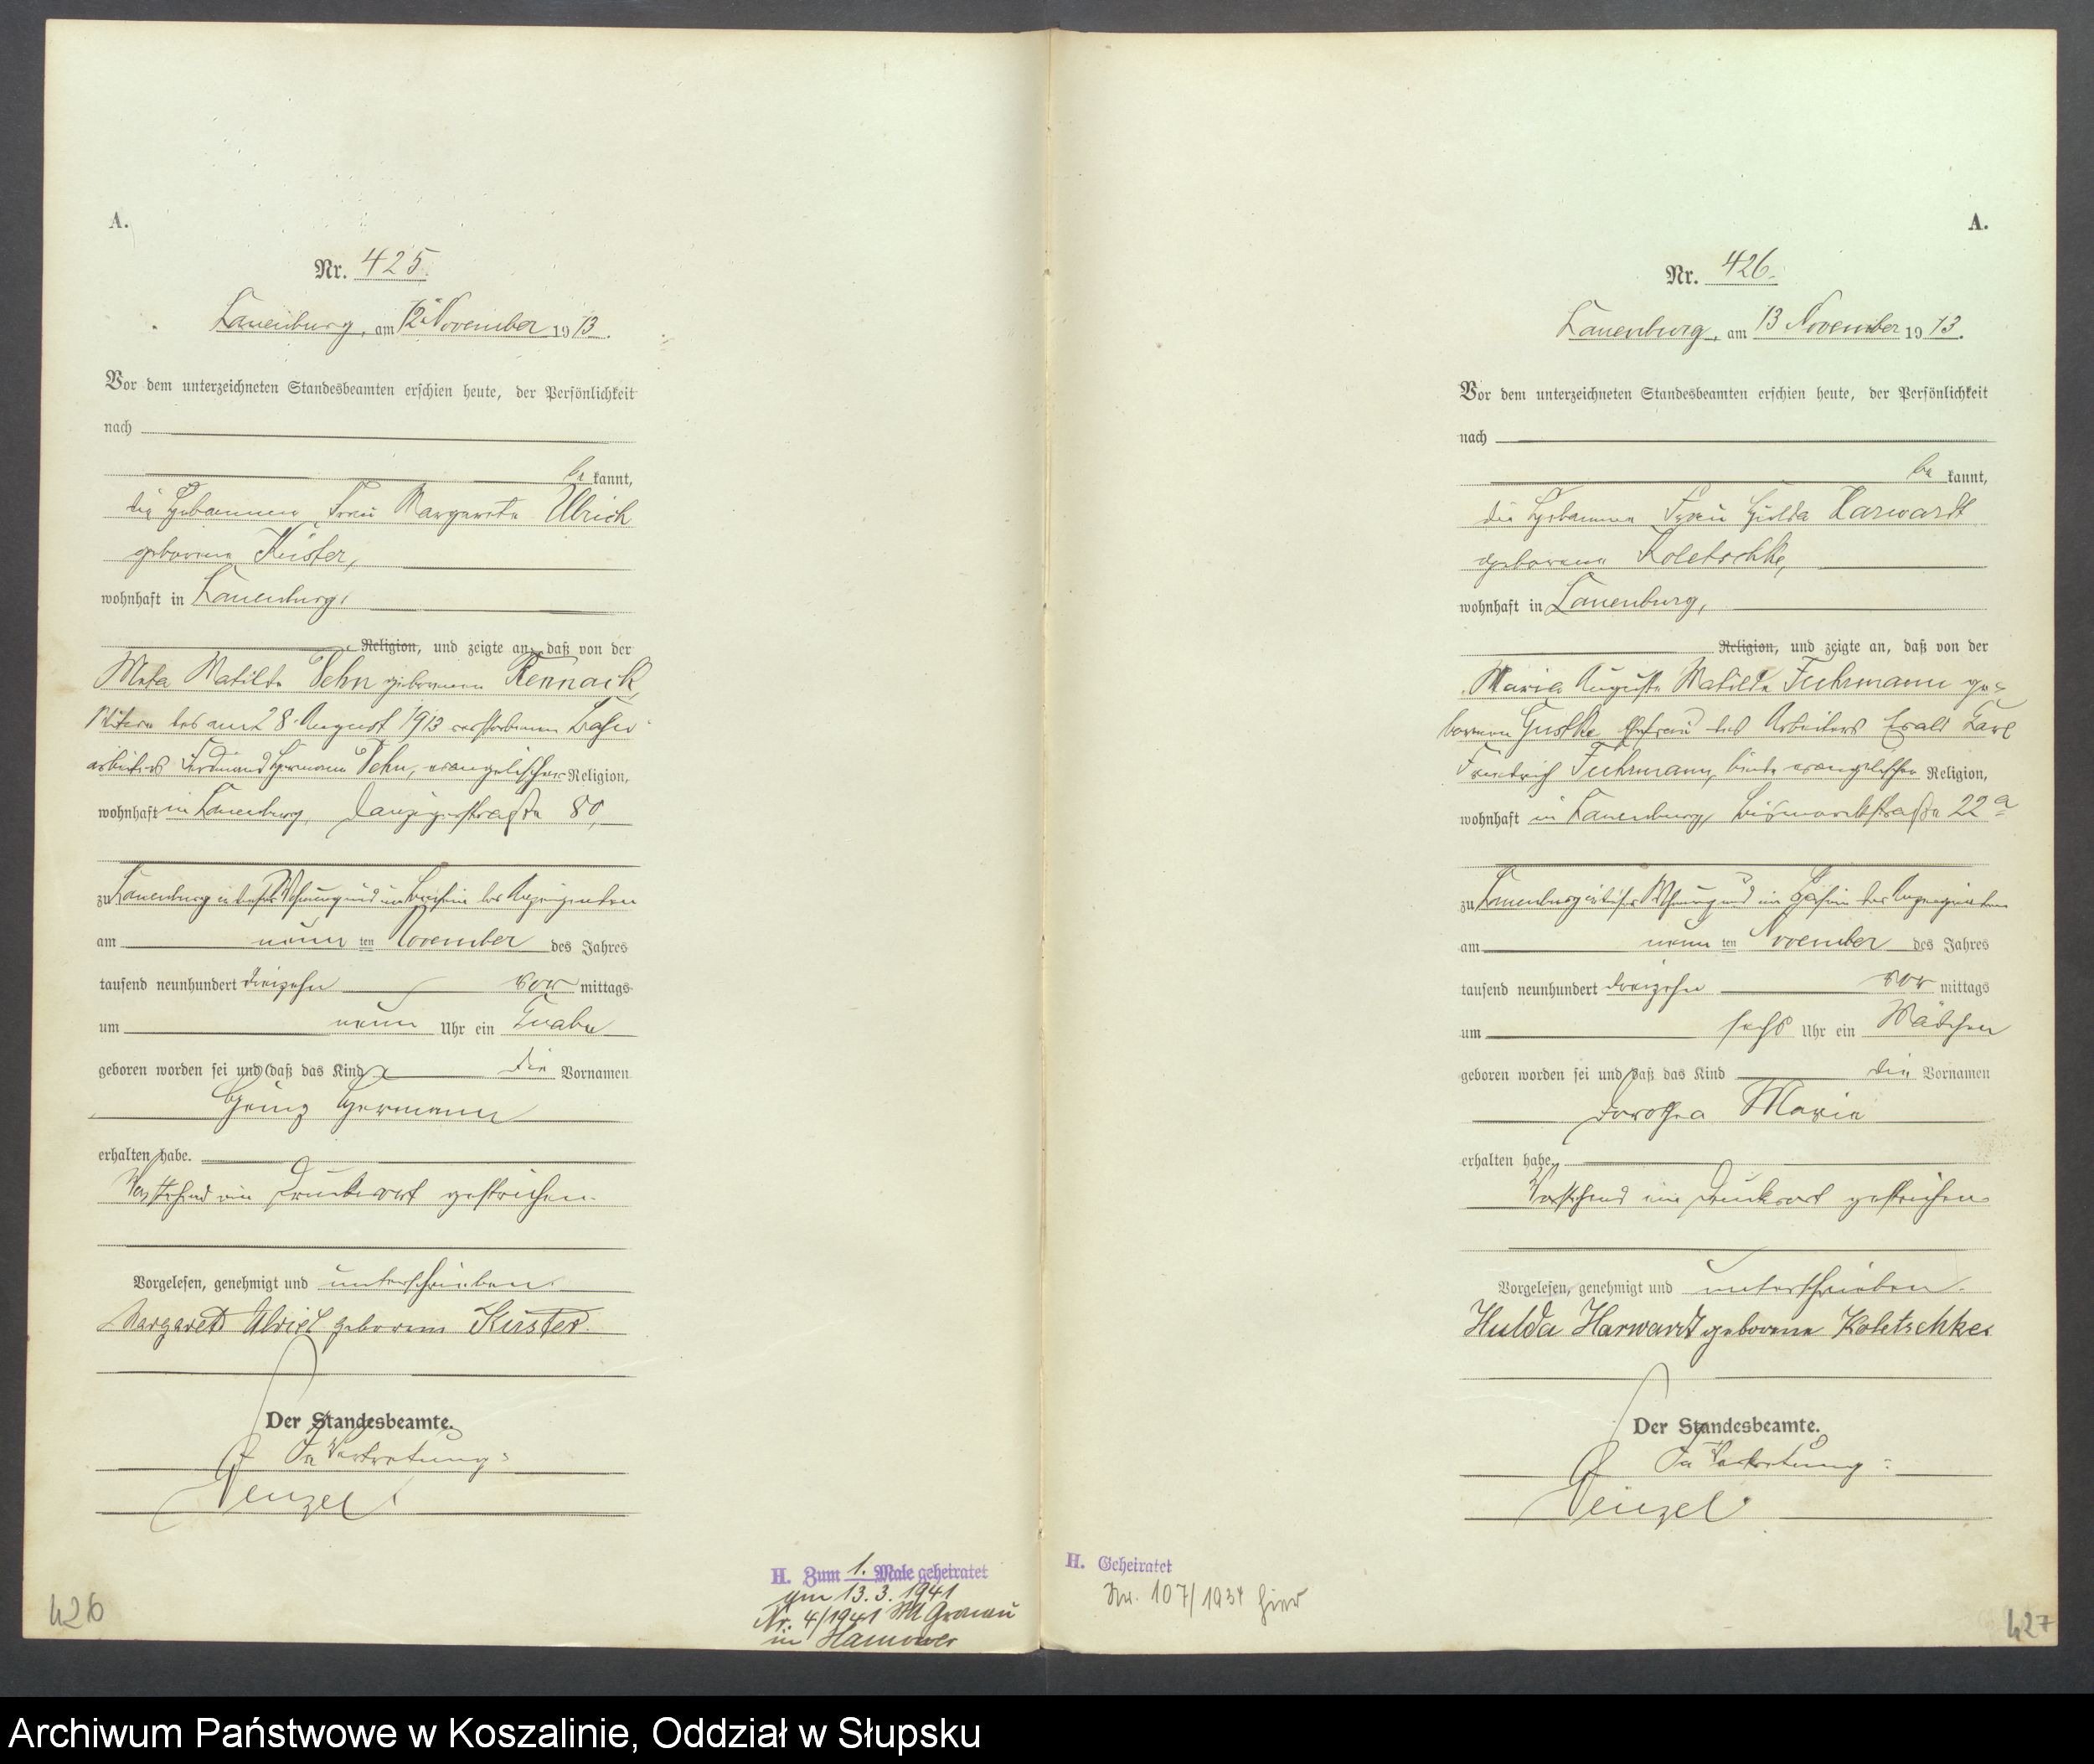 A.
Nr. 425.
Lauenburg, am 12 November 1913.
Vor dem unterzeichneten Standesbeamten erschien heute, der Persönlichkeit
nach
be kannt,
die Hebamme Frau Margarete Ulrich
geborene Küster,
wohnhaft in Lauenburg,
Religion, und zeigte an, daß von der
Meta Matilde Dehn geborenen Rennack,
Witwe des am 28 August 1913 verstorbenen
arbeiters Ferdinand Hermann Dehn, evangelischer Religion,
wohnhaft in Lauenburg, Danzigerstraße 80,
zu Lauenburg in dieser Wohnung und im Beisein der Anzeigenden
am neun ten November des Jahres
tausend neunhundert dreizehn vor mittags
um neun Uhr ein Knabe
geboren worden sei und daß das Kind die Vornamen
Heinz Hermann
erhalten habe.
Vorstehend ein Druckwort gestrichen.
Vorgelesen, genehmigt und unterschrieben
Margarete Ulrich geborene Küster.
Der Standesbeamte.
In Vertretung:
H. Zum 1. Male geheiratet
am 13.3.1941
Nr. 4/1941 Gronau
in Hannover
426
A.
Nr. 426.
Lauenburg, am 13 November 1913.
Vor dem unterzeichneten Standesbeamten erschien heute, der Persönlichkeit
nach
be kannt,
die Hebamme Frau Hulda Harwardt
geborene Koletschke,
wohnhaft in Lauenburg,
Religion, und zeigte an, daß von der
Maria Auguste Matilde Fuhrmann ge-
borenen Guske Ehefrau des Arbeiters Ewald Karl
Friedrich Fuhrmann, beide evangelischer Religion,
wohnhaft in Lauenburg, Bismarckstraße 22a
zu Lauenburg in dieser Wohnung und im Beisein der Anzeigenden
am neun ten November des Jahres
tausend neunhundert dreizehn vor mittags
um sechs Uhr ein Mädchen
geboren worden sei und daß das Kind die Vornamen
Dorothea Maria
erhalten habe.
Vorstehend ein Druckwort gestrichen.
Vorgelesen, genehmigt und unterschrieben.
Hulda Harwardt geborene Koletschke.
Der Standesbeamte.
In Vertretung:
H. Geheiratet
Nr. 107/1934 hier
427
Archiwum Państwowe w Koszalinie, Oddział w Słupsku